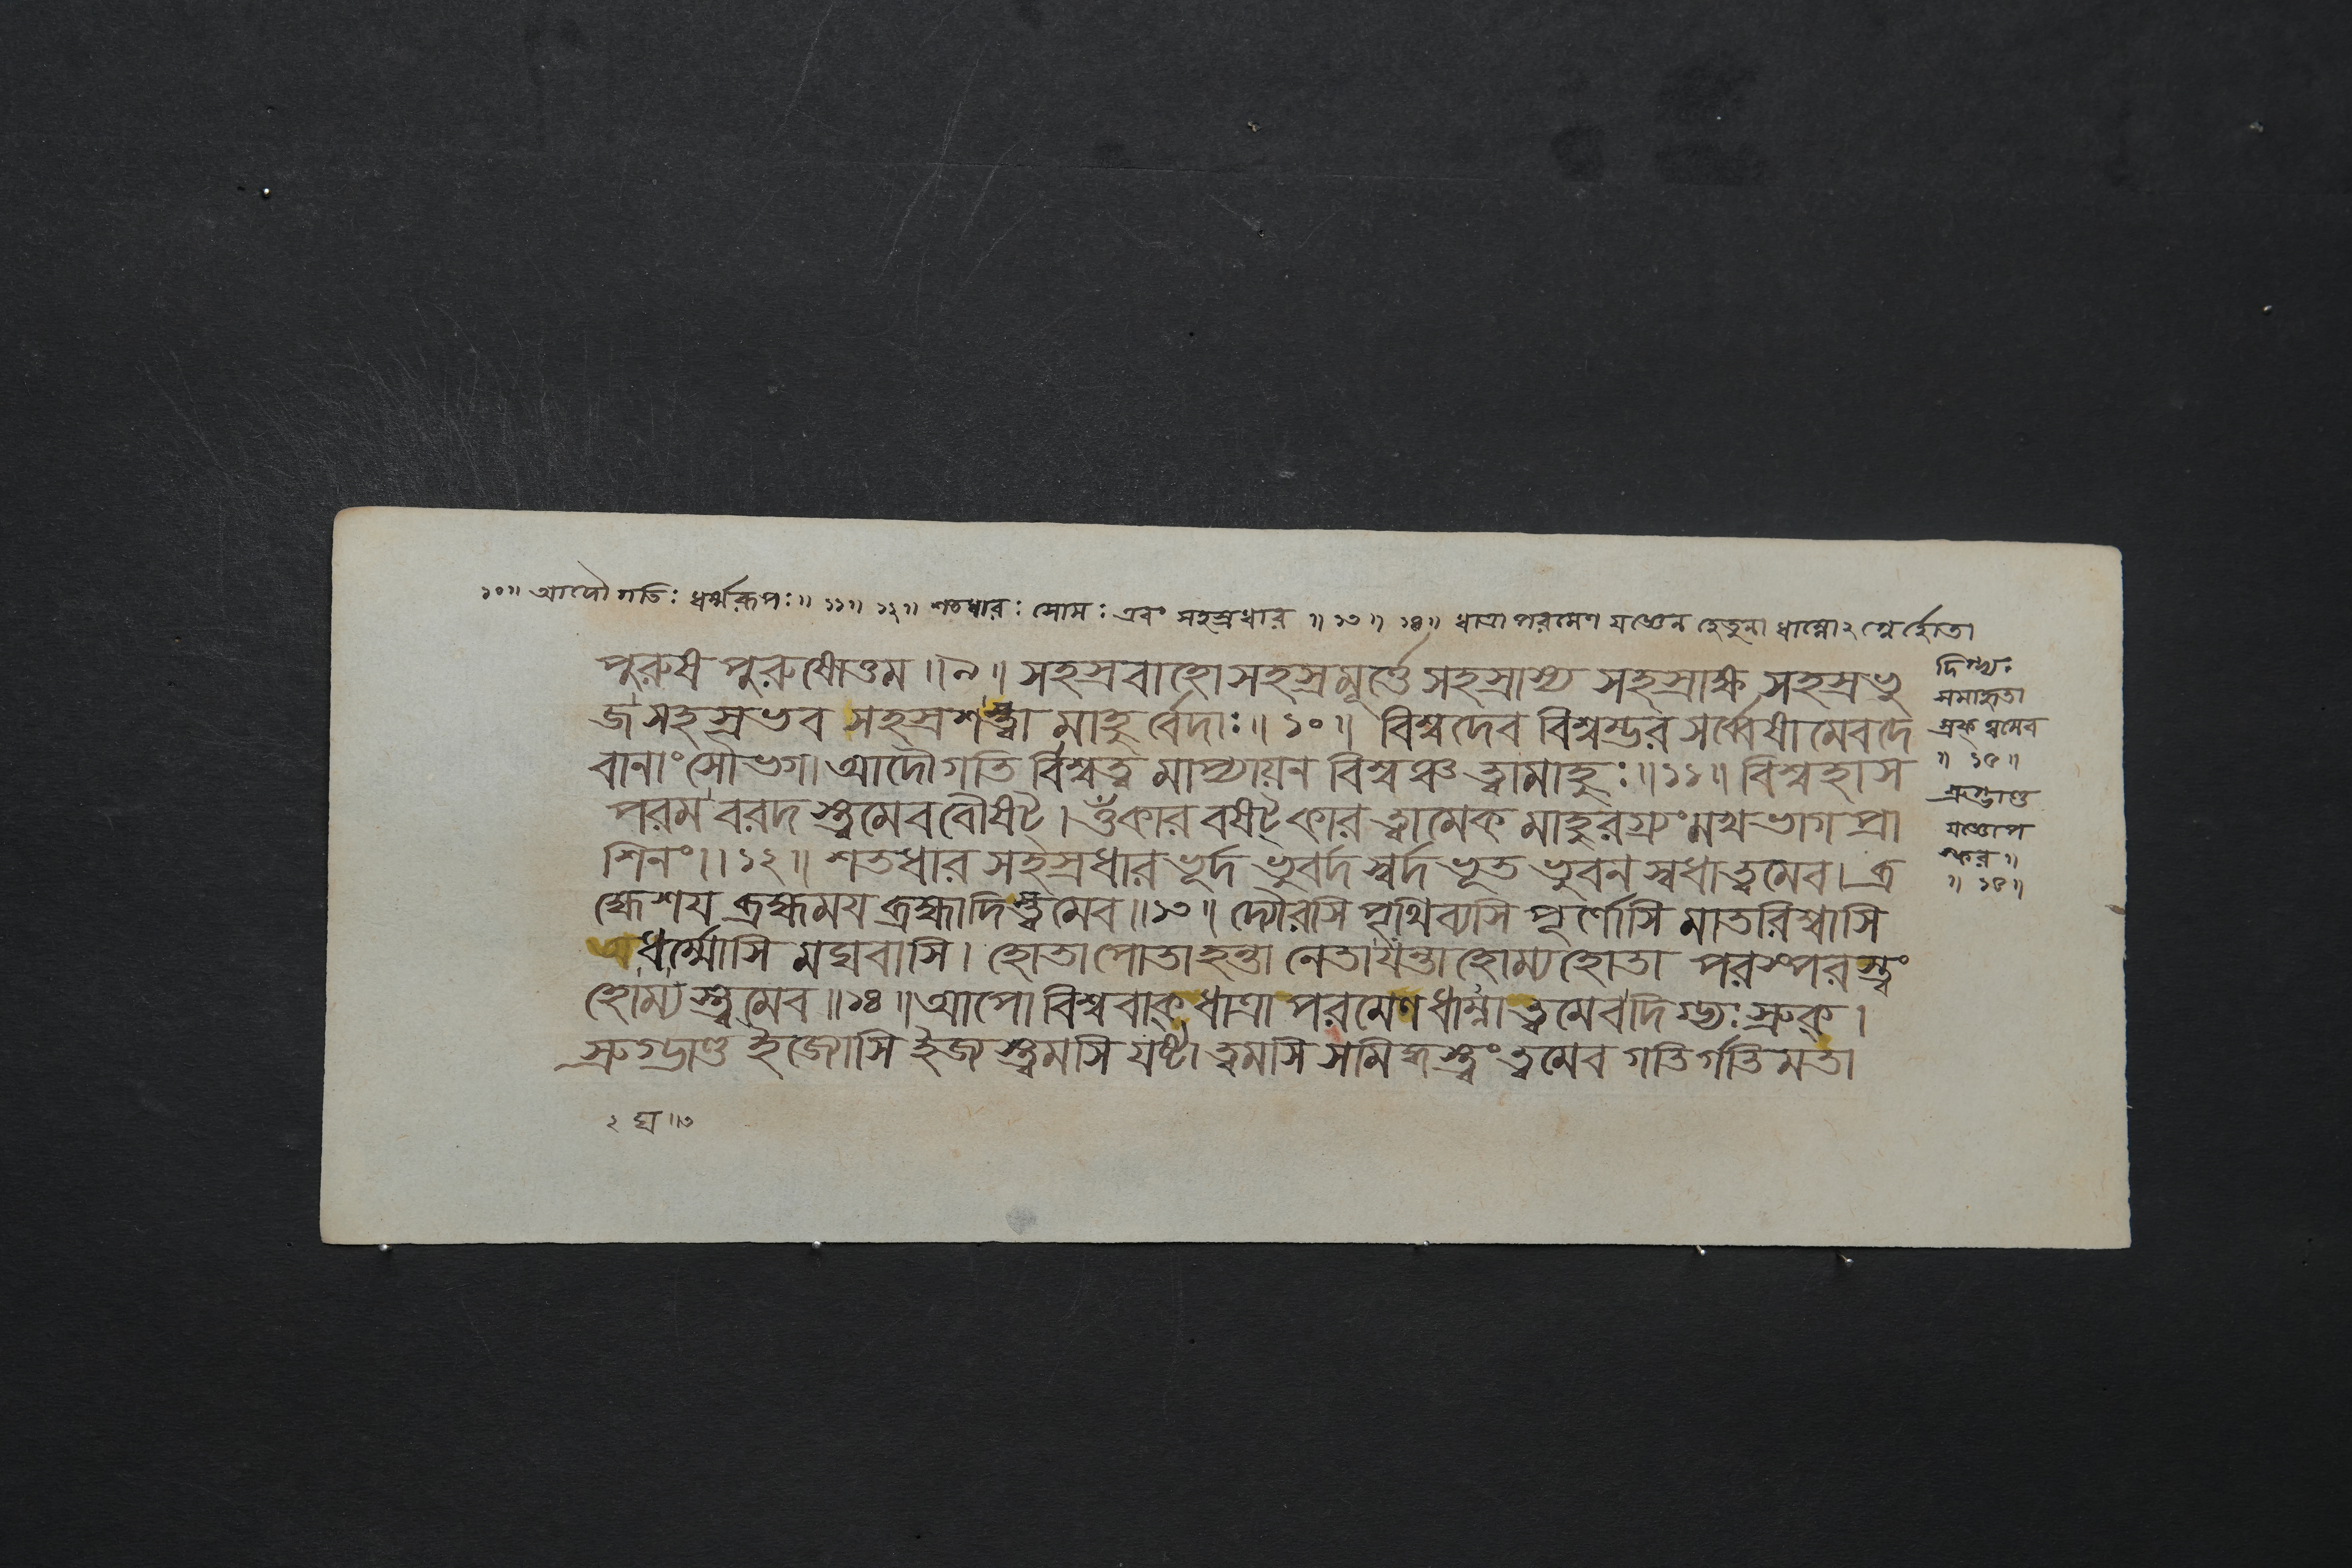 ১০॥ আদৌ গতিঃ ধর্ম্মরূপঃ॥ ১১॥ ১২॥ শতধারঃ সোমঃ এবং সহস্রধার ॥ ১৩॥ ১৪॥ ধাত্রা পরমেণ যজ্ঞেন হেতুনা ধাম্নো২গ্নের্হোতা
পুরুষ পুরুষোত্তম ॥৯॥ সহস্রবাহো সহস্রমূর্ত্তে সহস্রাস্য সহস্রাক্ষ সহস্রভু
জ সহস্রভব সহস্রশস্ত্বা মাহুর্বেদাঃ॥ ১০॥ বিশ্বদেব বিশ্বম্ভর সর্ব্বেষামেবদে
বানাং সৌভগ। আদৌ গতি র্বিশ্বত্ব মাপ্যায়ন বিশ্বঞ্চ ত্বামাহুঃ॥১১॥ বিশ্বহাস
পরম বরদ স্ত্বমেব বৌষট্। ওঁকার বষট্কার ত্বামেক মাহুরগ্র্যং মখভাগ প্রা
শিনং।। ১২॥ শতধার সহস্রধার ভূর্দ ভুবর্দ স্বর্দ ভূত ভুবন স্বধা ত্বমেব। ব্র
হ্মেশয ব্রহ্মময ব্রহ্মাদি স্ত্বমেব॥১৩॥ দ্যৌরসি পৃথিব্যসি পূর্ণোসি মাতরিশ্বাসি
অধর্ম্মোসি মঘবাসি। হোতা পোতা হন্তা নেতা যন্তা হোম্য হোতা পরস্পর স্ত্বং
হোম্য স্ত্বমেব॥১৪॥ আপো বিশ্ববাক্ ধাত্রা পরমেণ ধাম্না ত্বমেব দিগ্ভ্যঃ স্রুক্।
স্রুগ্ভাণ্ড ইজ্যোসি ইজ স্ত্বমসি যষ্টা ত্বমসি সমিদ্ধ স্ত্বং ত্বমেব গতির্গতিমতা
দিগ্ভ্যঃ
সমাহৃতা
স্রক্ ত্বমেব
॥ ১৫॥
স্রুগ্ভাণ্ড
যজ্ঞোপ
স্কর॥
॥ ১৫॥
২ ঘ॥৩